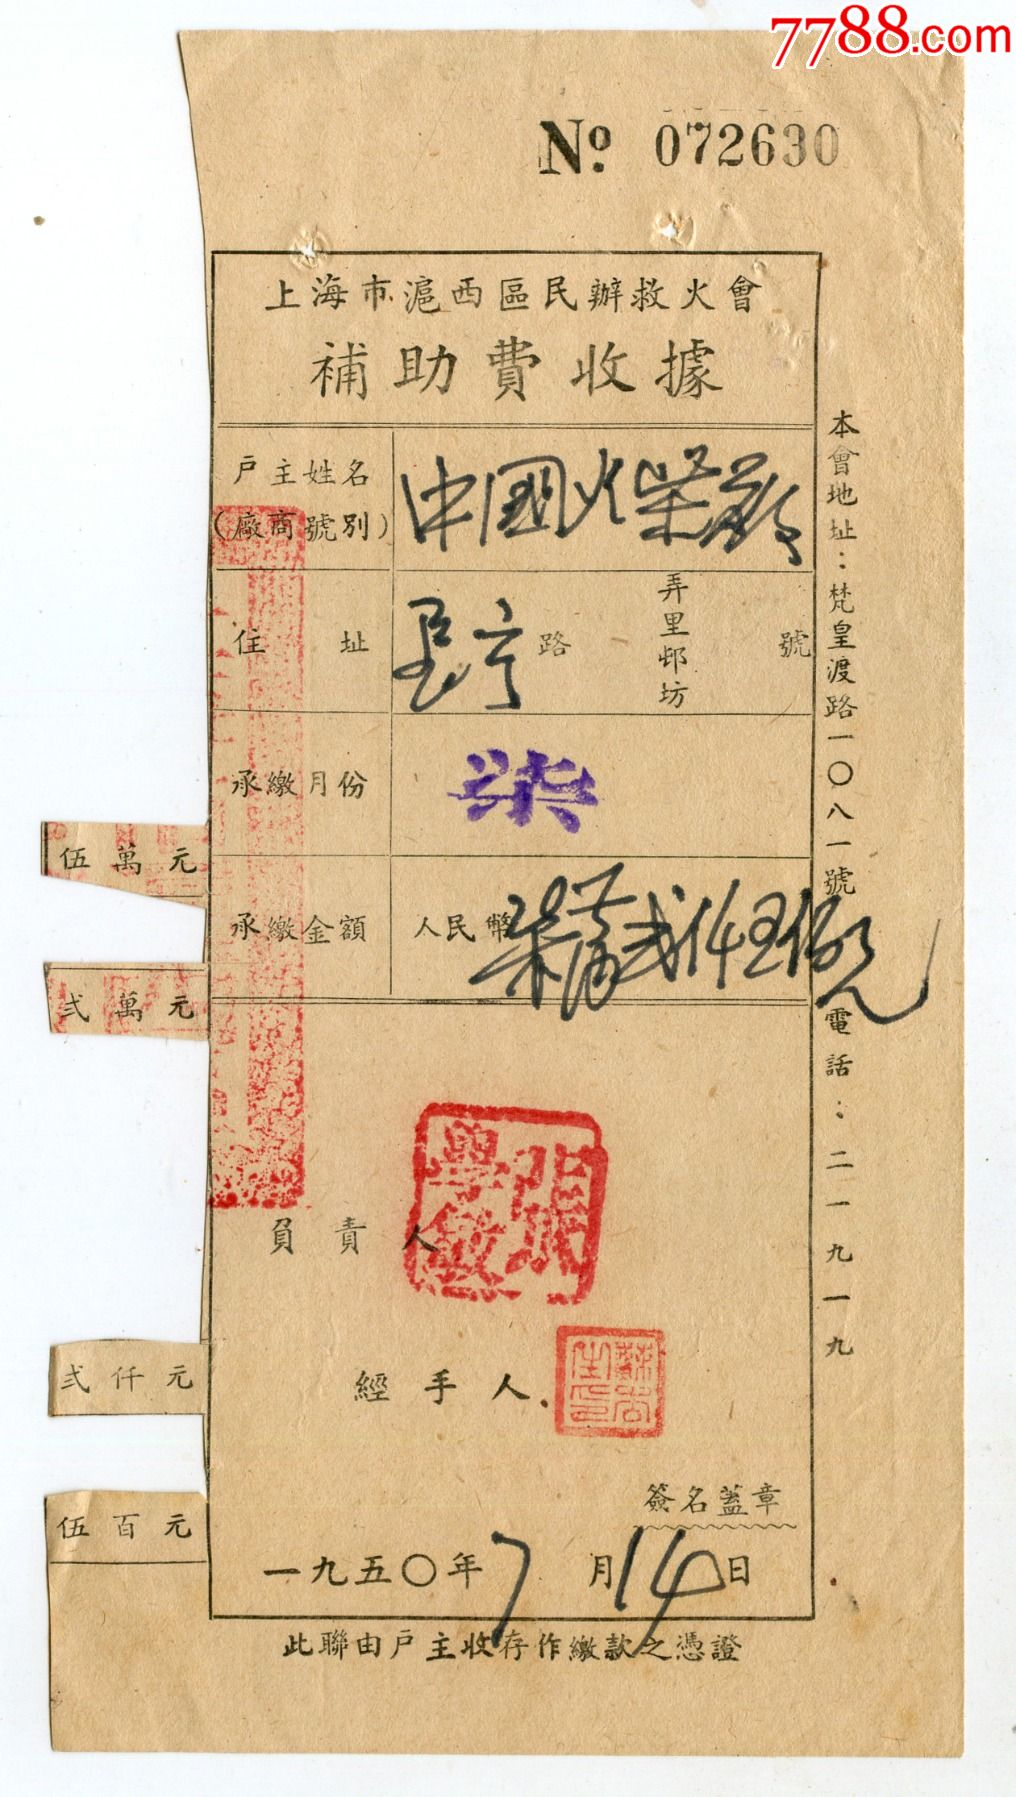 7788.com
No 072630
上海市滬西區民辦救火會
補助費收據
戶主姓名
(廠商號別)
中國火柴廠
住址
路
弄里邨坊
號
承繳月份
柒
承繳金額
人民幣
柒萬弍仟伍佰元
負責人
經手人
簽名蓋章
一九五〇年7月14日
此聯由戶主收存作繳款之憑證
本會地址:梵皇渡路一〇八一號 電話:二一九一九
伍萬元
弍萬元
弍仟元
伍百元